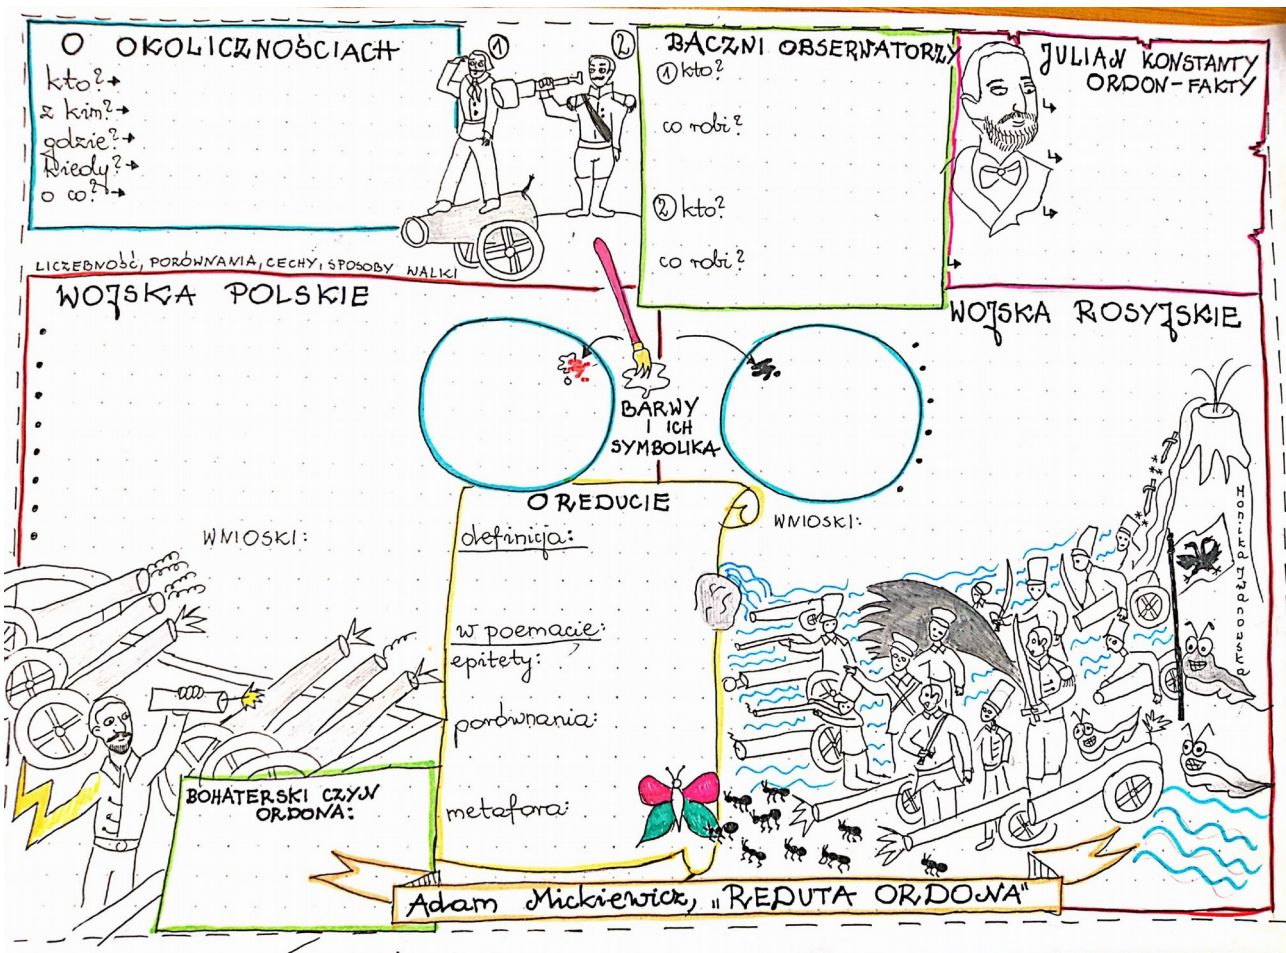 O OKOLICZNOŚCIACH
kto?→
z kim?→
gdzie?→
kiedy?→
o co?→
①
②
BACZNI OBSERWATORZY
① kto?
co robi?
② kto?
co robi?
JULIAN KONSTANTY
ORDON-FAKTY
LICZEBNOŚĆ, PORÓWNANIA, CECHY, SPOSOBY WALKI
WOJSKA POLSKIE
WNIOSKI:
BARWY
I ICH
SYMBOLIKA
WOJSKA ROSYJSKIE
WNIOSKI:
O REDUCIE
definicja:
w poemacie:
epitety:
porównania:
metafora:
BOHATERSKI CZYN
ORDONA:
Monika Iwanowska
Adam Mickiewicz, „REDUTA ORDONA"